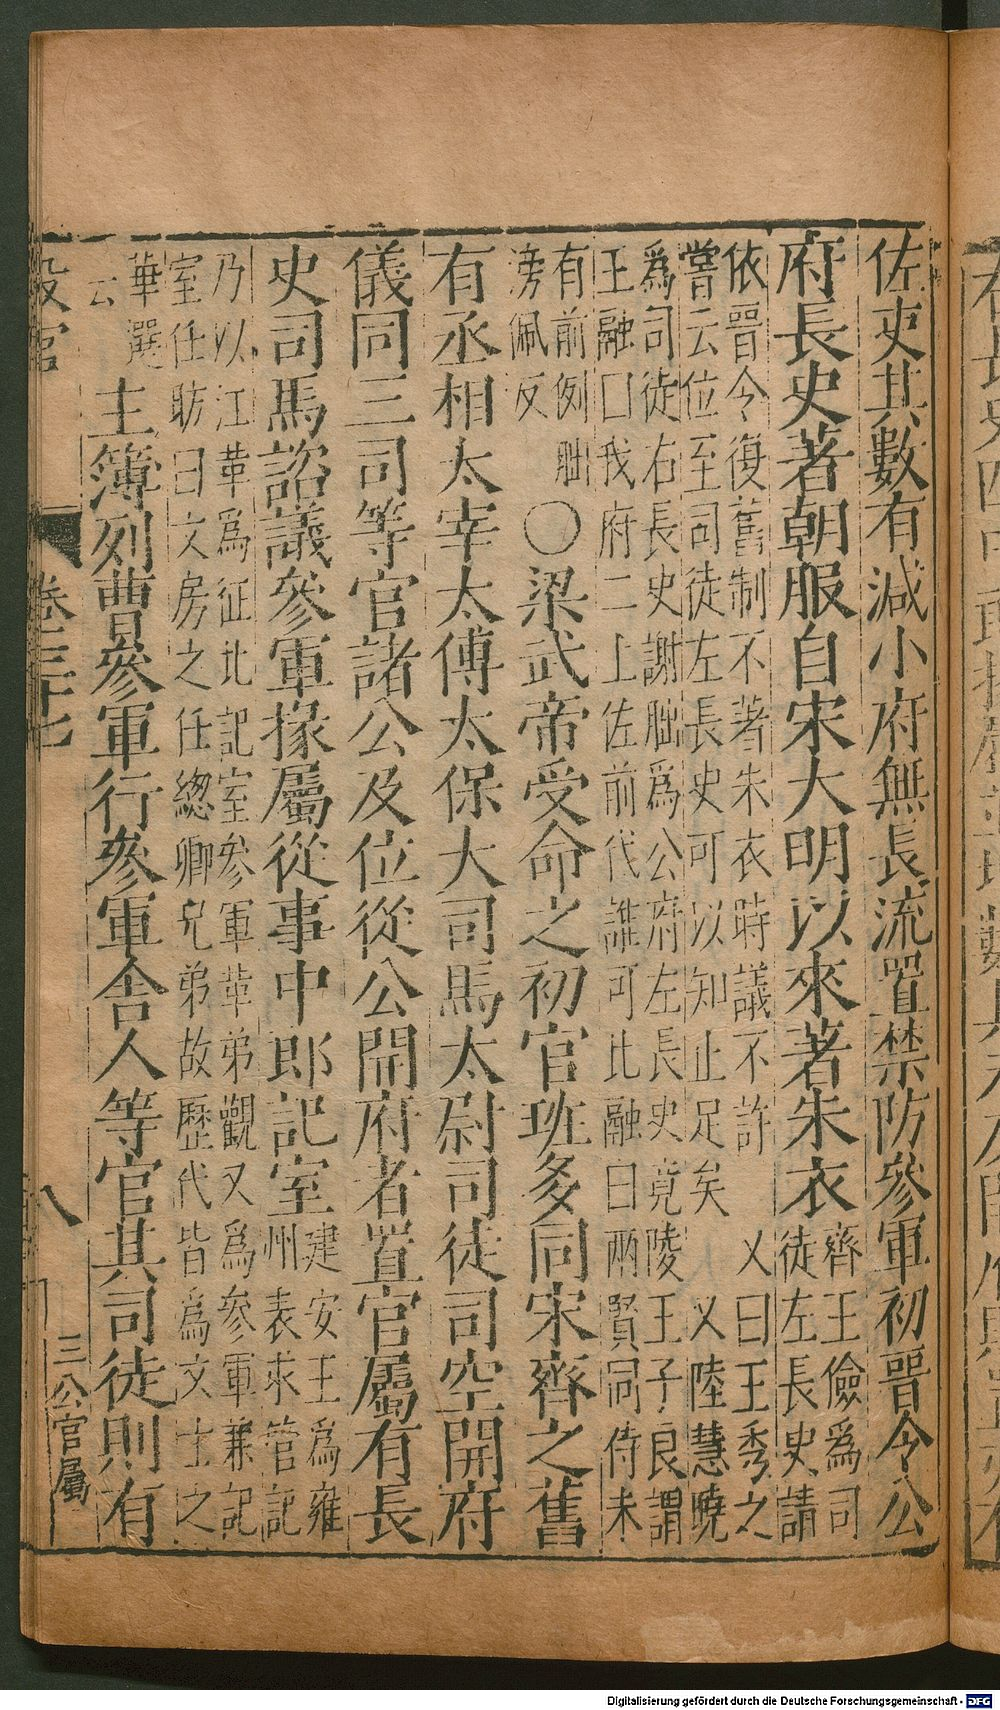 佐吏其數有減小府無長流置禁防參軍初晉令公
府長史著朝服自宋大明以來著朱衣
齊王儉為司
徒左長史請
依晉令復舊制不著朱衣時議不許 乂曰王秀之
嘗云位至司徒左長史可以知止足矣 乂陸慧曉
為司徒右長史謝朏為公府左長史竟陵王子良謂
王融囗我府二上佐前代誰可比融曰兩賢同侍未
有前例朏
滂佩反
○梁武帝受命之初官班多同宋齊之舊
有丞相太宰太傅太保大司馬太尉司徒司空開府
儀同三司等官諸公及位從公開府者置官屬有長
史司馬諮議參軍掾屬從事中郎記室
建安王為雍
州表求管記
乃以江革為征北記室參軍革弟觀又為參軍兼記
室任昉曰文房之任總卿兄弟故歷代皆為文士之
華選
云
主簿列曹參軍行參軍舍人等官其司徒則有
設官 卷三十七 八 三公官屬
Digitalisierung gefördert durch die Deutsche Forschungsgemeinschaft - DFG